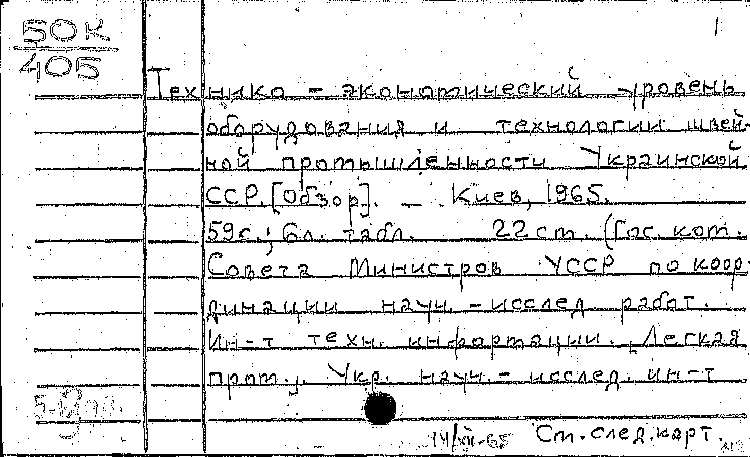 50К
405
1
Технико - экономический уровень
оборудования и технологии швей-
ной промышленности Украинской
ССР. [Обзор]. - Киев, 1965.
59с.; 6л. табл. 22 cm. (Гос. ком.
Совета Министров УССР по коор-
динации науч. - исслед. работ.
Ин-т техн. информации. Легкая
пром.). Укр. науч. - исслед. ин-т
14/XII-65 См. след. карт.